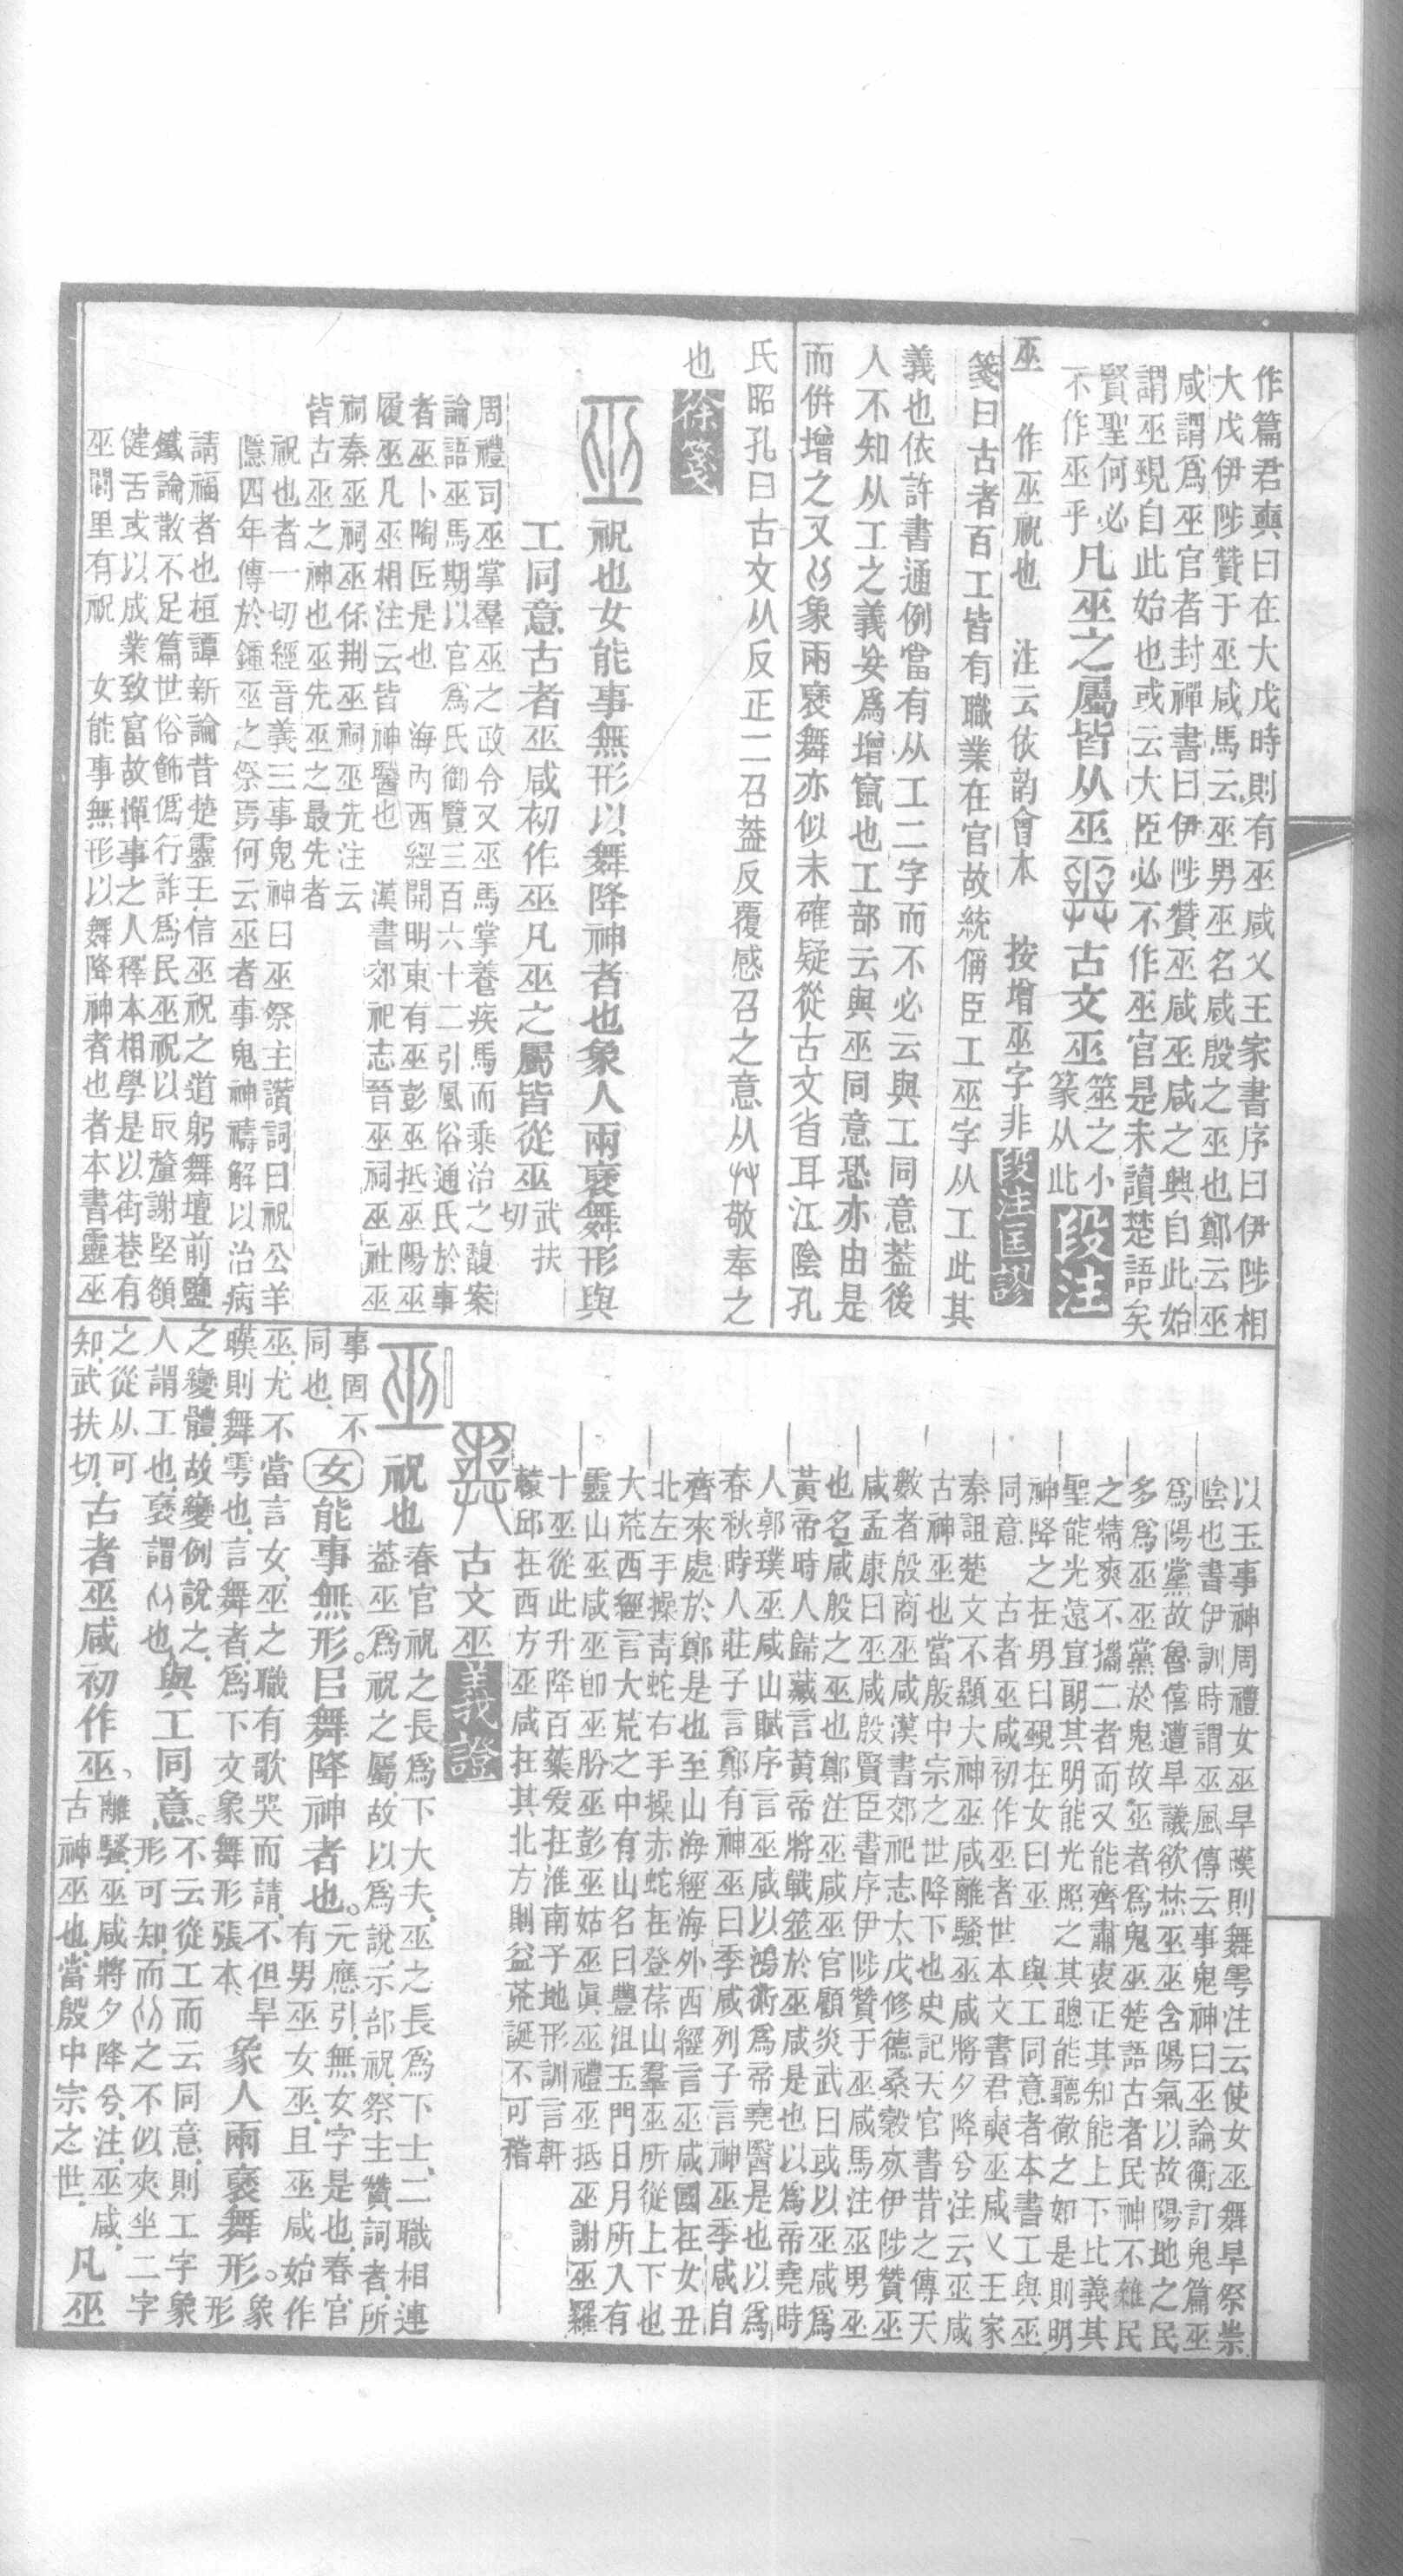 作篇君奭曰在大戊時則有巫咸乂王家書序曰伊陟相
大戊伊陟贊于巫咸馬云巫男巫名咸殷之巫也鄭云巫
咸謂爲巫官者封禪書曰伊陟贊巫咸巫咸之興自此始
謂巫覡自此始也或云大臣必不作巫官是未讀楚語矣
賢聖何必
不作巫乎
凡巫之屬皆从巫
古文巫
筮之小
篆从此
段注
巫 作巫祝也 注云依韵會本 按增巫字非
段注匡謬
箋曰古者百工皆有職業在官故統偁臣工巫字从工此其
義也依許書通例當有从工二字而不必云與工同意葢後
人不知从工之義妄爲增竄也工部云與巫同意恐亦由是
而倂增之又从象兩襃舞亦似未確疑從古文省耳江陰孔
氏昭孔曰古文从反正二召葢反覆感召之意从艸敬奉之
也
徐箋
巫
祝也女能事無形以舞降神者也象人兩襃舞形與
工同意古者巫咸初作巫凡巫之屬皆從巫
武扶
切
周禮司巫掌羣巫之政令又巫馬掌養疾馬而乘治之馥案
論語巫馬期以官爲氏御覽三百六十二引風俗通氏於事
者巫卜陶匠是也 海內西經開明東有巫彭巫抵巫陽巫
履巫凡巫相注云皆神醫也 漢書郊祀志晉巫祠巫社巫
祠秦巫祠巫保荆巫祠巫先注云
皆古巫之神也巫先巫之最先者
祝也者一切經音義三事鬼神曰巫祭主讚詞曰祝公羊
隱四年傳於鍾巫之祭焉何云巫者事鬼神禱解以治病
請福者也桓譚新論昔楚靈王信巫祝之道躬舞壇前鹽
鐵論散不足篇世俗飾僞行詐爲民巫祝以取釐謝堅頟
健舌或以成業致富故憚事之人釋本相學是以街巷有
巫閭里有祝 女能事無形以舞降神者也者本書靈巫
以玉事神周禮女巫旱暵則舞雩注云使女巫舞旱祭崇
陰也書伊訓時謂巫風傳云事鬼神曰巫論衡訂鬼篇巫
爲陽黨故魯僖遭旱議欲焚巫巫含陽氣以故陽地之民
多爲巫巫黨於鬼故巫者爲鬼巫楚語古者民神不雜民
之精爽不攜二者而又能齊肅衷正其知能上下比義其
聖能光遠宣朗其明能光照之其聰能聽徹之如是則明
神降之在男曰覡在女曰巫 與工同意者本書工與巫
同意 古者巫咸初作巫者世本文書君奭巫咸乂王家
秦詛楚文不顯大神巫咸離騷巫咸將夕降兮注云巫咸
古神巫也當殷中宗之世降下也史記天官書昔之傳天
數者殷商巫咸漢書郊祀志太戊修德桑穀死伊陟贊巫
咸孟康曰巫咸殷賢臣書序伊陟贊于巫咸馬注巫男巫
也名咸殷之巫也鄭注巫咸巫官顧炎武曰或以巫咸爲
黃帝時人歸藏言黃帝將戰筮於巫咸是也以爲帝堯時
人郭璞巫咸山賦序言巫咸以鴻術爲帝堯醫是也以爲
春秋時人莊子言鄭有神巫曰季咸列子言神巫季咸自
齊來處於鄭是也至山海經海外西經言巫咸國在女丑
北左手操靑蛇右手操赤蛇在登葆山羣巫所從上下也
大荒西經言大荒之中有山名曰豐沮玉門日月所入有
靈山巫咸巫卽巫肦巫彭巫姑巫眞巫禮巫抵巫謝巫羅
十巫從此升降百藥爰在淮南子地形訓言軒
轅邱在西方巫咸在其北方則益荒誕不可稽
古文巫
義證
巫
祝也
春官祝之長爲下大夫、巫之長爲下士、二職相連
葢巫爲祝之屬、故以爲說、示部祝祭主贊詞者、所
事固不
同也、
女能事無形。㠯舞降神者也。
元應引、無女字是也、春官
有男巫女巫、且巫咸始作
巫、尤不當言女、巫之職有歌哭而請、不但旱
暵則舞雩也、言舞者、爲下文象舞形張本、
象人兩襃舞形。
象
形
之變體、故變例說之、
人謂工也、襃謂从也、
與工同意。
不云從工而云同意、則工字象
形可知、而从之不似夾坐二字
之從从可
知、武扶切、
古者巫咸初作巫、
離騷、巫咸將夕降兮、注、巫咸、
古神巫也、當殷中宗之世、
凡巫